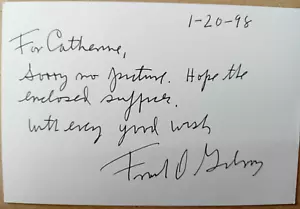 1-20-98
For Catherine,
Sorry no picture. Hope the
enclosed suffices.
With every good wish